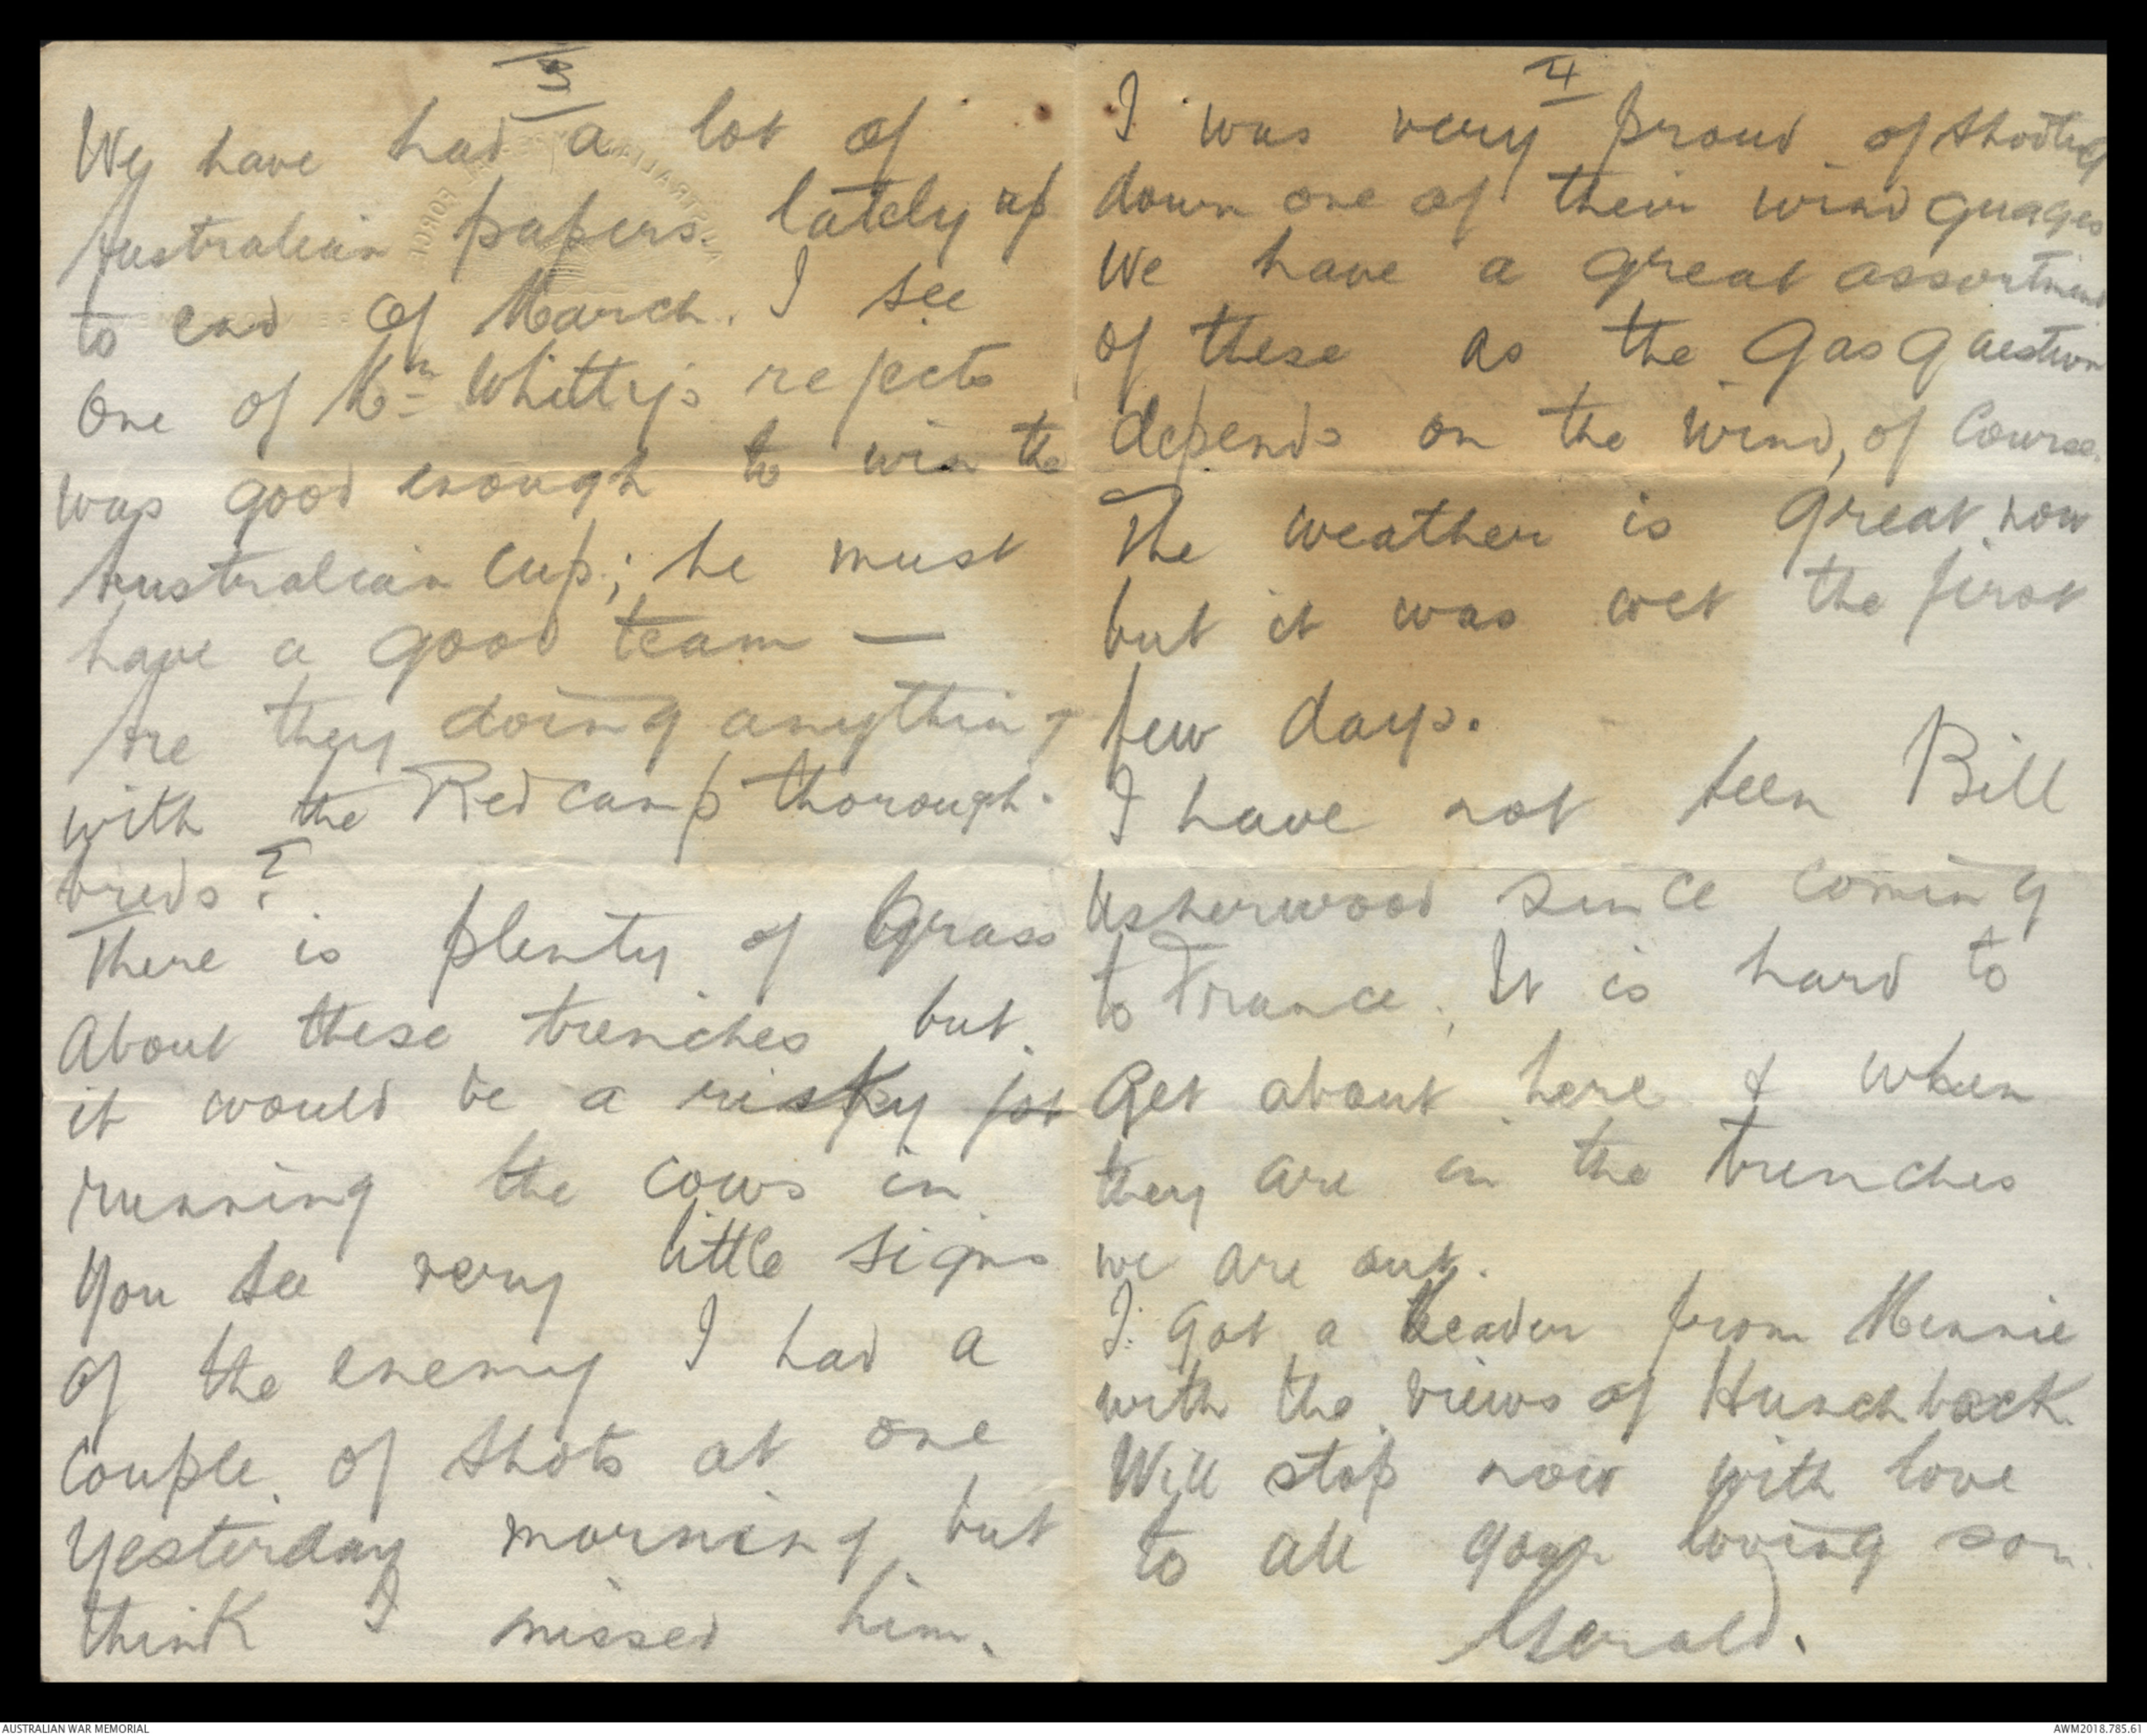 3
We have had a lot of
Australian papers. lately up
to end of March. I see
One of Mr Whitty's rejects
was good enough to win the
Australian Cup; he must
have a good team —
Are they doing anything
with the Redcamp thorough-
breds?
There is plenty of Grass
About these trenches but
it would be a risky job
running the cows in
You see very little signs
of the enemy I had a
Couple of shots at one
Yesterday morning but
think I missed him.
4
I was very proud of shooting
down one of their wind guages
We have a great assortment
of these as the Gas Question
depends on the wind, of Course.
The weather is Great now
but it was wet the first
few days.
I have not seen Bill
Usherwood since coming
to France. It is hard to
Get about here & when
they are in the trenches
we are out.
I got a Leader from Minnie
with the views of Hunchback.
Will stop now with love
to all your loving son
Gerald.
AUSTRALIAN WAR MEMORIAL
AWM2018.785.61